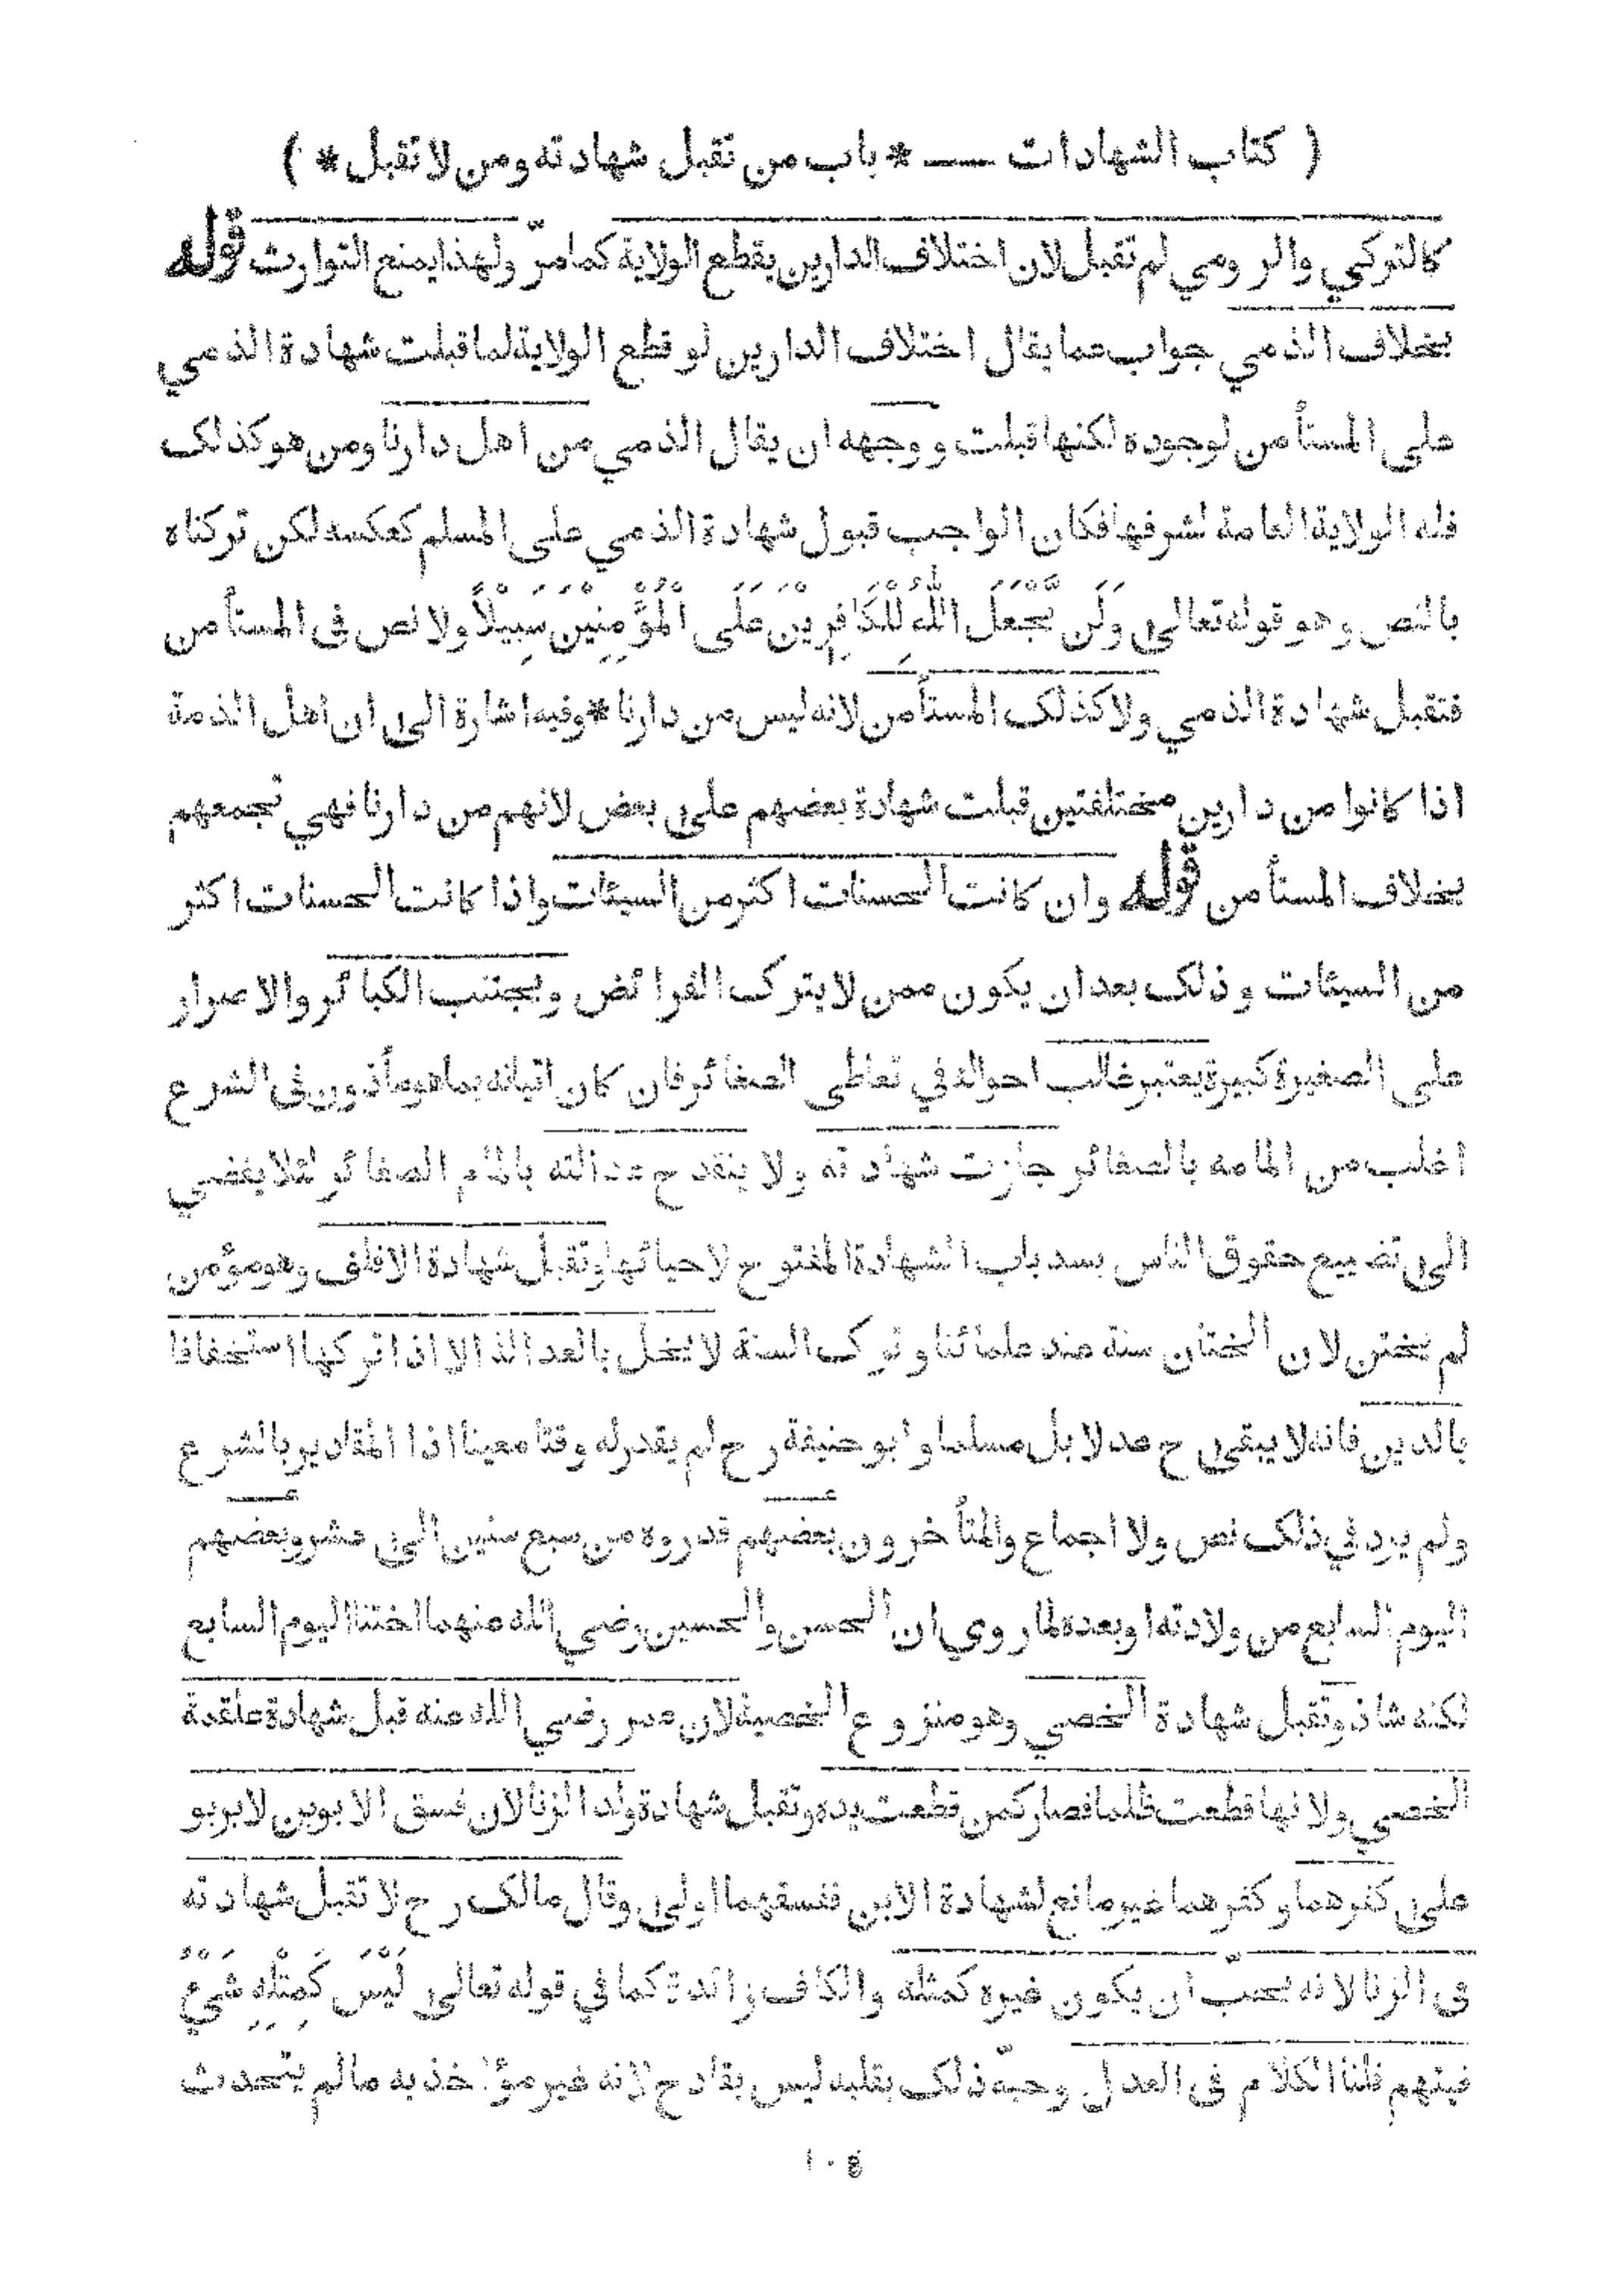 ( كتاب الشهادات — * باب من تقبل شهادته ومن لا تقبل * )
كالتركي والرومي لم تقبل لان اختلاف الدارين يقطع الولاية كما مرّ ولهذا يمنع التوارث قوله
بخلاف الذمي جواب عما يقال اختلاف الدارين لو قطع الولاية لما قبلت شهادة الذمي
على المستأمن لوجوده لكنها قبلت ووجهه ان يقال الذمي من اهل دارنا ومن هو كذلك
فله الولاية العامة لشرفها فكان الواجب قبول شهادة الذمي على المسلم كعكسه لكن تركناه
بالنص وهو قوله تعالى وَلَن يَّجْعَلَ اللهُ لِلْكَافِرِيْنَ عَلَى الْمُؤْمِنِيْنَ سَبِيْلًا ولا نص فى المستأمن
فتقبل شهادة الذمي ولا كذلك المستأمن لانه ليس من دارنا * وفيه اشارة الى ان اهل الذمة
اذا كانوا من دارين مختلفتين قبلت شهادة بعضهم على بعض لانهم من دارنا فهي تجمعهم
بخلاف المستأمن قوله وان كانت الحسنات اكثر من السيئات واذا كانت الحسنات اكثر
من السيئات وذلك بعد ان يكون ممن لا يترك الفرائض ويجتنب الكبائر والاصرار
على الصغيرة كبيرة يعتبر غالب احواله في تعاطى الصغائر فان كان اتيانه بما هو مأذون فى الشرع
اغلب من المامه بالصغائر جازت شهادته ولا ينقدح عدالته بالمام الصغائر لئلا يفضي
الى تضييع حقوق الناس بسد باب الشهادة المفتوح لاحيائها وتقبل شهادة الاقلف وهو مؤمن
لم يختن لان الختان سنة عند علمائنا وترك السنة لا يخل بالعدالة الا اذا تركها استخفافا
بالدين فانه لا يبقى ح عدلا بل مسلما وابو حنيفة رح لم يقدر له وقتا معينا اذا المقادير بالشرع
ولم يرد في ذلك نص ولا اجماع والمتأخرون بعضهم قدروه من سبع سنين الى عشر وبعضهم
اليوم السابع من ولادته او بعده لما روي ان الحسن والحسين رضي الله عنهما اختنا اليوم السابع
لكنه شاذ وتقبل شهادة الخصي وهو منزوع الخصية لان عمر رضي الله عنه قبل شهادة علقمة
الخصي ولانها قطعت ظلما فصار كمن قطعت يده وتقبل شهادة ولد الزنا لان فسق الابوين لا يربو
على كفرهما وكفرهما غير مانع لشهادة الابن ففسقهما اولى وقال مالك رح لا تقبل شهادته
فى الزنا لانه يحبّ ان يكون غيره كمثله والكاف زائدة كما في قوله تعالى لَيْسَ كَمِثْلِهِ شَيْءٌ
فيتهم قلنا الكلام فى العدل وحبّه ذلك بقلبه ليس بقادح لانه غير مؤاخذ به مالم يتحدث